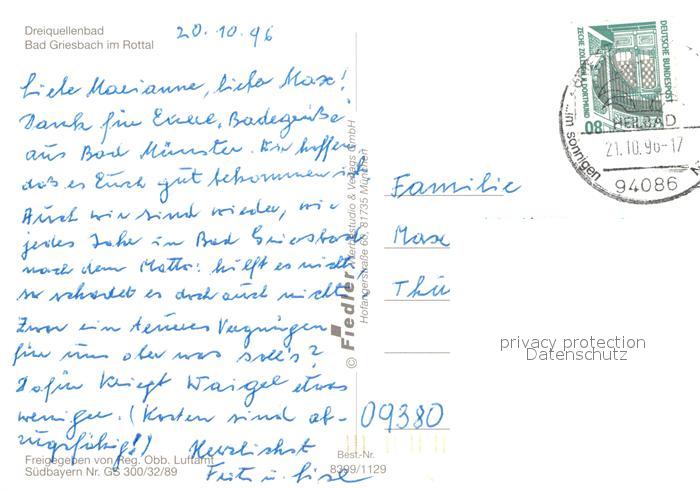 Dreiquellenbad
Bad Griesbach im Rottal
20.10.96
Liebe Marianne, lieber Max!
Dank für Euere "Badegrüße"
aus Bad Münster. Wir hoffen
daß es Euch gut bekommen ist.
Auch wir sind wieder, wie
jedes Jahr in Bad Griesbach
nach dem Motto: hilft es nichts,
so schadet es doch auch nichts.
Zwar ein teueres Vergnügen
für uns aber was soll's?
Dafür kriegt Waigel etwas
weniger. (Kosten sind ab-
zugsfähig!)
Herzlichst
Fritz u. Lise
Freigegeben von Reg. Obb. Luftamt
Südbayern Nr. GS 300/32/89
Best.-Nr.
8399/1129
© Fiedler Werbestudio & Verlags GmbH
Hofangerstraße 68, 81735 München
DEUTSCHE BUNDESPOST
ZECHE ZOLLERN II, DORTMUND
80
HEILBAD
21.10.96-17
...im sonnigen
94086
Familie
Max
Thü
09380
privacy protection
Datenschutz